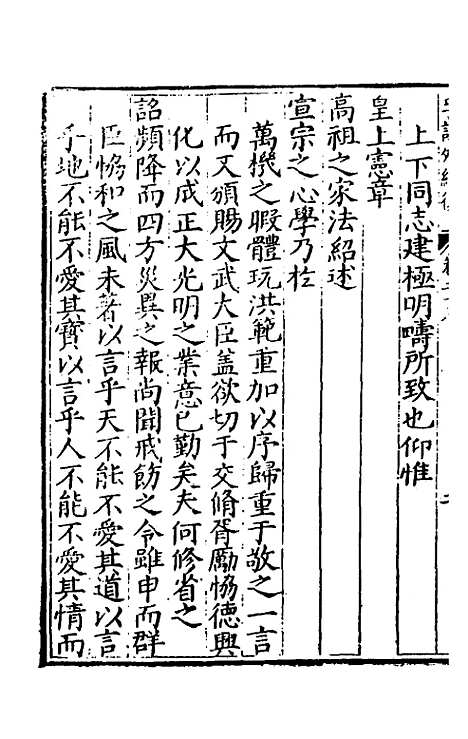 上下同志建極明疇所致也仰惟
皇上憲章
高祖之家法紹述
宣宗之心學乃於
萬機之暇體玩洪範重加以序歸重于敬之一言
而又頒賜文武大臣盖欲切于交脩胥勵恊德興
化以成正大光明之業意已勤矣夫何修省之
詔頻降而四方災異之報尚聞戒飭之令雖申而群
臣恊和之風未著以言乎天不能不愛其道以言
乎地不能不愛其寳以言乎人不能不愛其情而